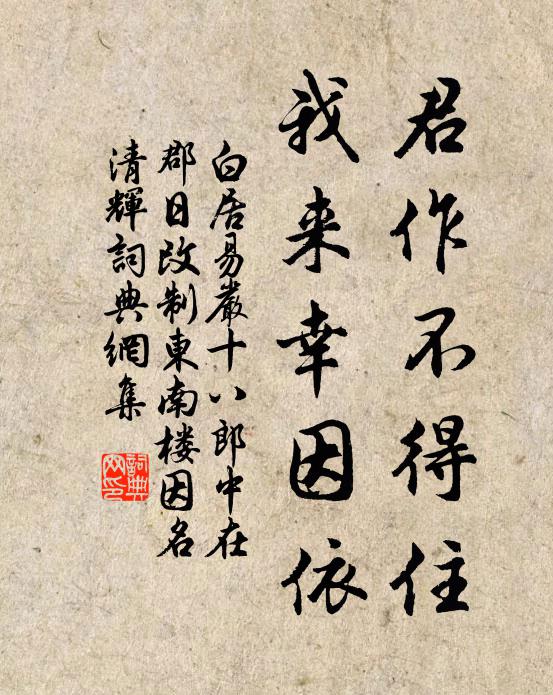 君作不得住
我来幸因依
白居易嚴十八郎中在
郡日改制東南楼因名
清輝詞典網集
詞典
网印